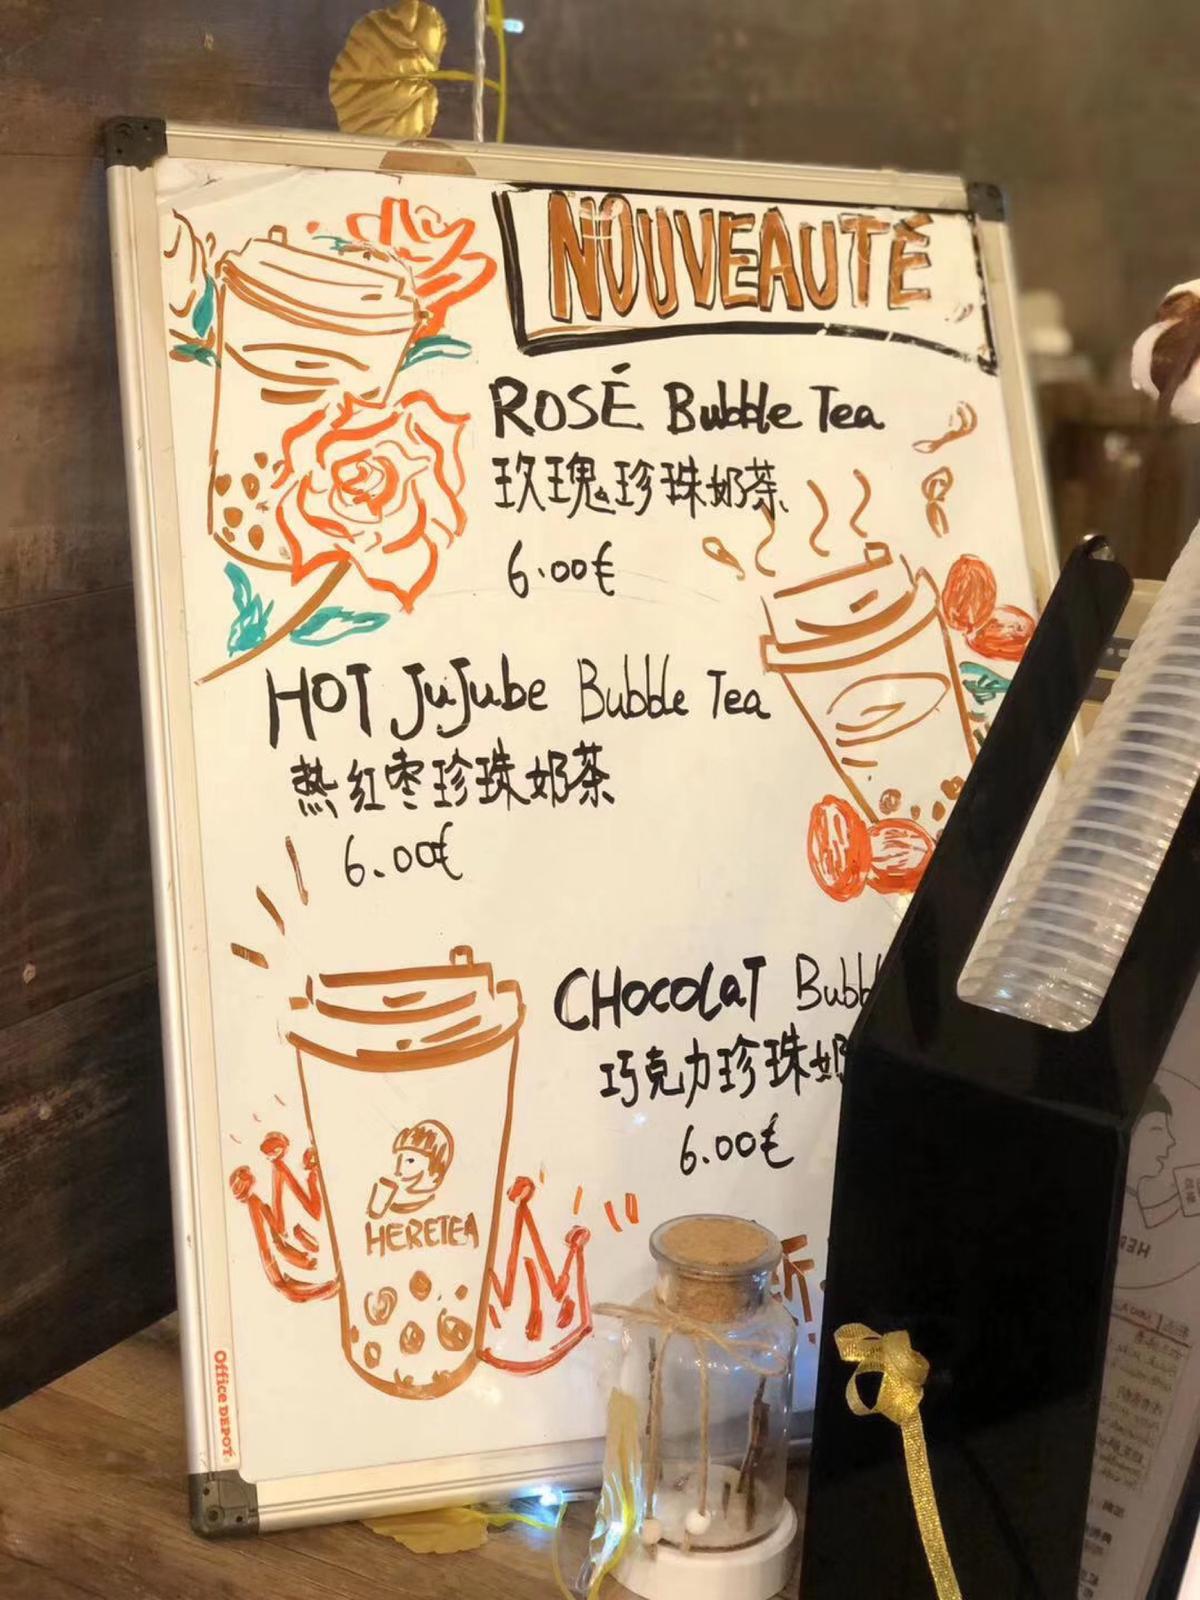 NOUVEAUTÉ
ROSÉ Bubble Tea
玫瑰珍珠奶茶
6.00€
HOT JuJube Bubble Tea
热红枣珍珠奶茶
6.00€
CHocolaT Bubb
巧克力珍珠奶
6.00€
HERETEA
Office DEPOT